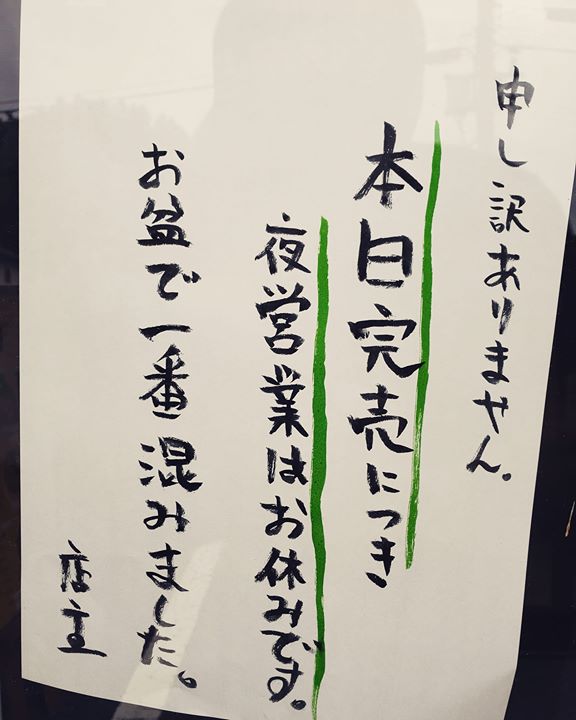 申し訳ありません。
本日完売につき
夜営業はお休みです。
お盆で一番混みました。
店主